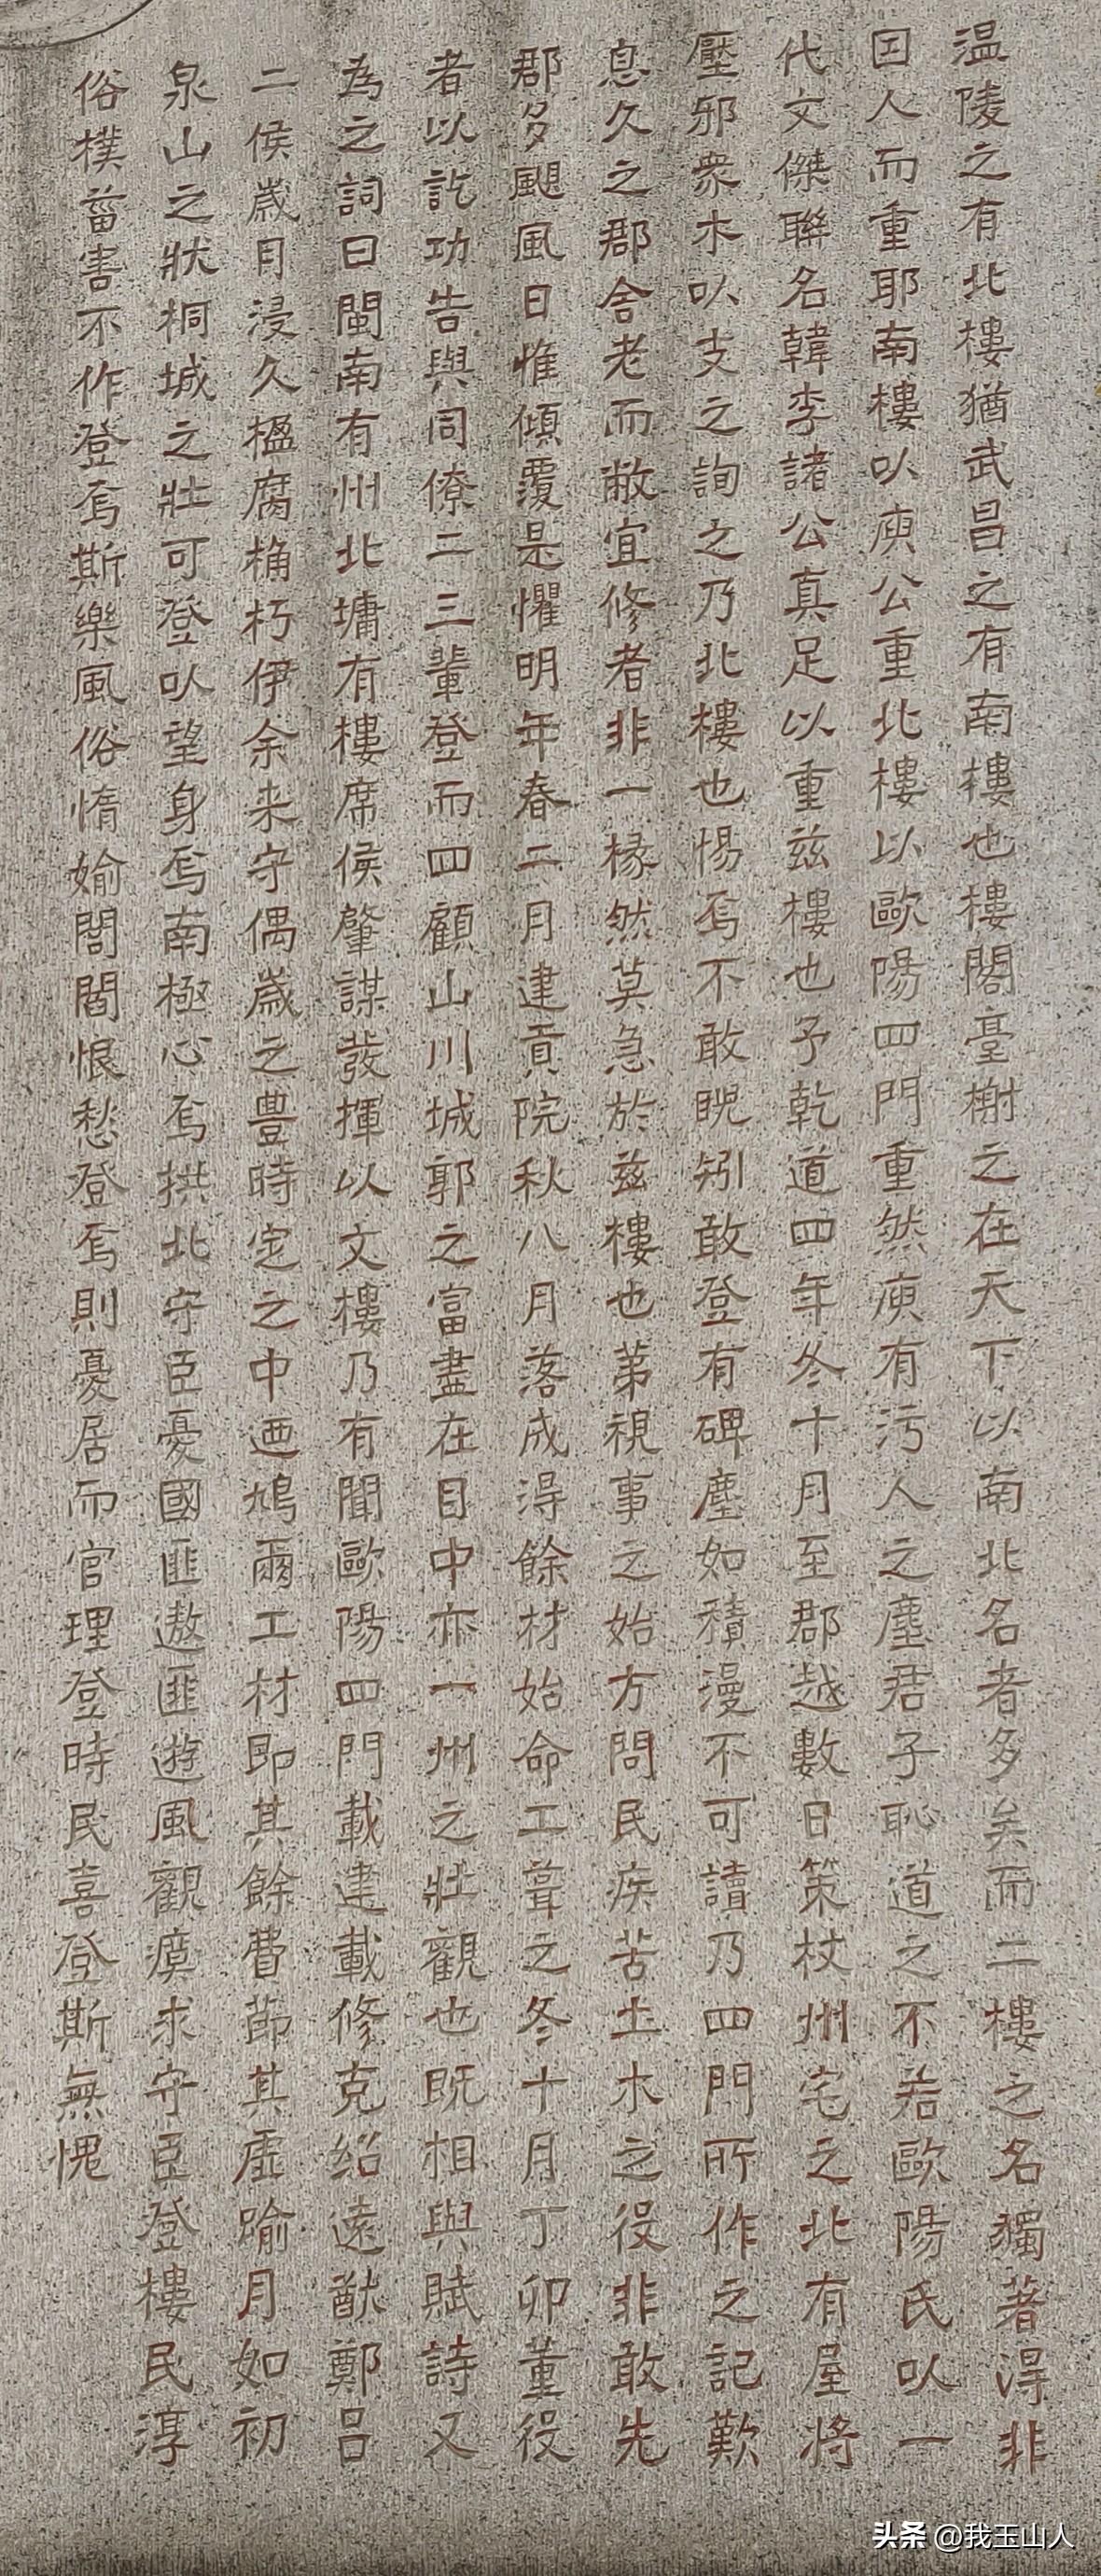 温陵之有北樓猶武昌之有南樓也樓閣臺榭之在天下以南北名者多矣而二樓之名獨著得非
因人而重耶南樓以庾公重北樓以歐陽四門重然庾有污人之塵君子恥道之不若歐陽氏以一
代文傑聯名韓李諸公真足以重兹樓也予乾道四年冬十月至郡越數日策杖州宅之北有屋將
壓邪衆木以支之詢之乃北樓也惕焉不敢睨矧敢登有碑塵如積漫不可讀乃四門所作之記歎
息久之郡舍老而敝宜修者非一椽然莫急於兹樓也第視事之始方問民疾苦土木之役非敢先
郡多颶風日惟傾覆是懼明年春二月建貢院秋八月落成得餘材始命工葺之冬十月丁卯董役
者以訖功告與同僚二三輩登而四顧山川城郭之富盡在目中亦一州之壯觀也既相與賦詩又
為之詞曰閩南有州北墉有樓席侯肇謀發揮以文樓乃有聞歐陽四門載建載修克紹遠猷鄭呂
二侯歳月浸久楹腐桷朽伊余来守偶歳之豊時定之中迺鳩爾工材即其餘費節其虛踰月如初
泉山之狀桐城之壯可登以望身焉南極心焉拱北守臣憂國匪遨匪遊風觀瘼求守臣登樓民淳
俗樸菑害不作登焉斯樂風俗惰媮誾閻恨愁登焉則憂居而官理登時民喜登斯無愧
头条 @我玉山人